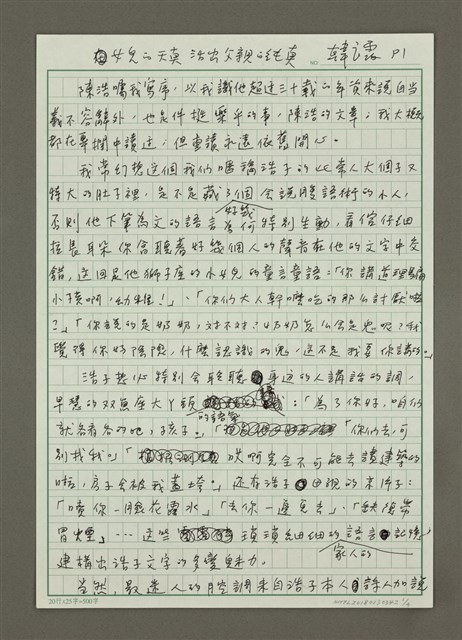 因女兒的天真 活出父親的純真 NO. 韓良露 P1
陳浩囑我寫序,以我識他超過三十載的年資來說自當
義不容辭外,也是件挺樂乎的事,陳浩的文章,我大概
都在專欄中讀過,但重讀永遠依舊開心。
我常幻想這個我們暱稱浩子的此常人大個子又
特大的肚子裡,是不是藏了好幾個會說腹語術的小人,
否則他下筆為文的語言為何特別生動,看官仔細
拉長耳朵你會聽著好幾個人的聲音在他的文字中交
錯,這回是他獅子座的小女兒的童言童語:「你講道理騙
小孩啊,幼稚!」、「你們大人幹嘛吃的那麼討厭啦
?」「你說的是奶奶,對不對?奶奶怎麼會是鬼呢?我
覺得你好陰險,什麼認識的鬼,還不是我要你講的。」
浩子想必特別會聆聽身邊的人講話的調,
早慧的双魚座大丫頭的語氣:「為了你好,咱們
就各看各的吧,孩子。」「你們去,可
別找我。」「爸啊完全不可能去讀建築的
啦,房子會被我畫垮。」還有浩子母親的京片子:
「噴你一脖花露水」、「去你一邊兒去」、「缺陽常
冒煙」…這些瑣瑣細細的家人的語言記憶,
建構出浩子文字的多聲魅力。
當然,最迷人的腔調來自浩子本人,詩人加說
20行×25字=500字